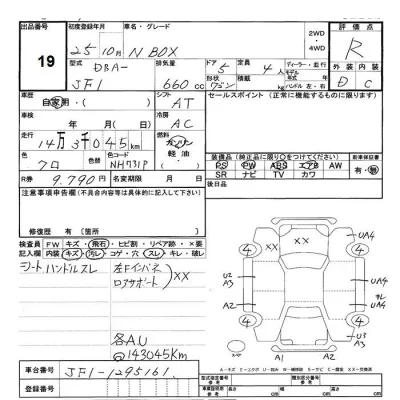 出品番号 19
初度登録年月 25年10月
車名・グレード N BOX
2WD
・4WD
評価点 R
型式 DBA-JF1
排気量 660cc
ドア 5
形状 ワゴン
定員 4人
ディーラー・並行
モデル年
kg ハンドル 左・右
外装 D
内装 C
車歴 自家用・( )
シフト AT
セールスポイント (正常に機能するものに限ります)
車検 年 月( 日)
冷房 AC
走行 14万3千045km
燃料 ガソリン
軽油
・( )
色 クロ
色コード NH731P
装備品 (純正品に限り○をつけてください)
PS PW ABS エアB AW
SR ナビ TV カワ
新車時保証書
有・無
R券 9,790円
名変期限 月 日
後日品
注意事項申告欄(不具合内容等は具体的に記入して下さい)
修復歴 有( )箇所
検査員記入欄
FW キズ・飛石・ヒビ割・リペア跡・×要
内装 キズ・汚レ・コゲ・穴・スレ・キレ・破レ
シート ハンドルスレ
左Fインパネ
ロアサポート
XX
各AU
@143045Km
4 4 4 4
XX XX
UA4
U2
A3
A2
UA4
UA4
U3
A3
A1 A2
A-キズ E-エクボ U-凹み W-補修跡 S-サビ C-腐食 XX-交換済
車台番号 JF1-1295161
登録番号
型式指定番号
参考
類別区分番号
参考
車両寸法
参考
長さ cm
幅 cm
高さ cm